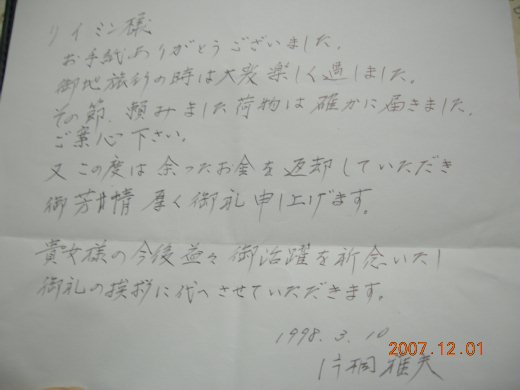 リイミン様
お手紙ありがとうございました。
御地旅行の時は大変楽しく過しました。
その節、頼みました荷物は確かに届きました。
ご案心下さい。
又この度は余ったお金を返却していただき
御芳情厚く御礼申し上げます。
貴女様の今後益々御活躍を祈念いたし
御礼の挨拶に代へさせていただきます。
1998.3.10
片桐雅夫
2007.12.01